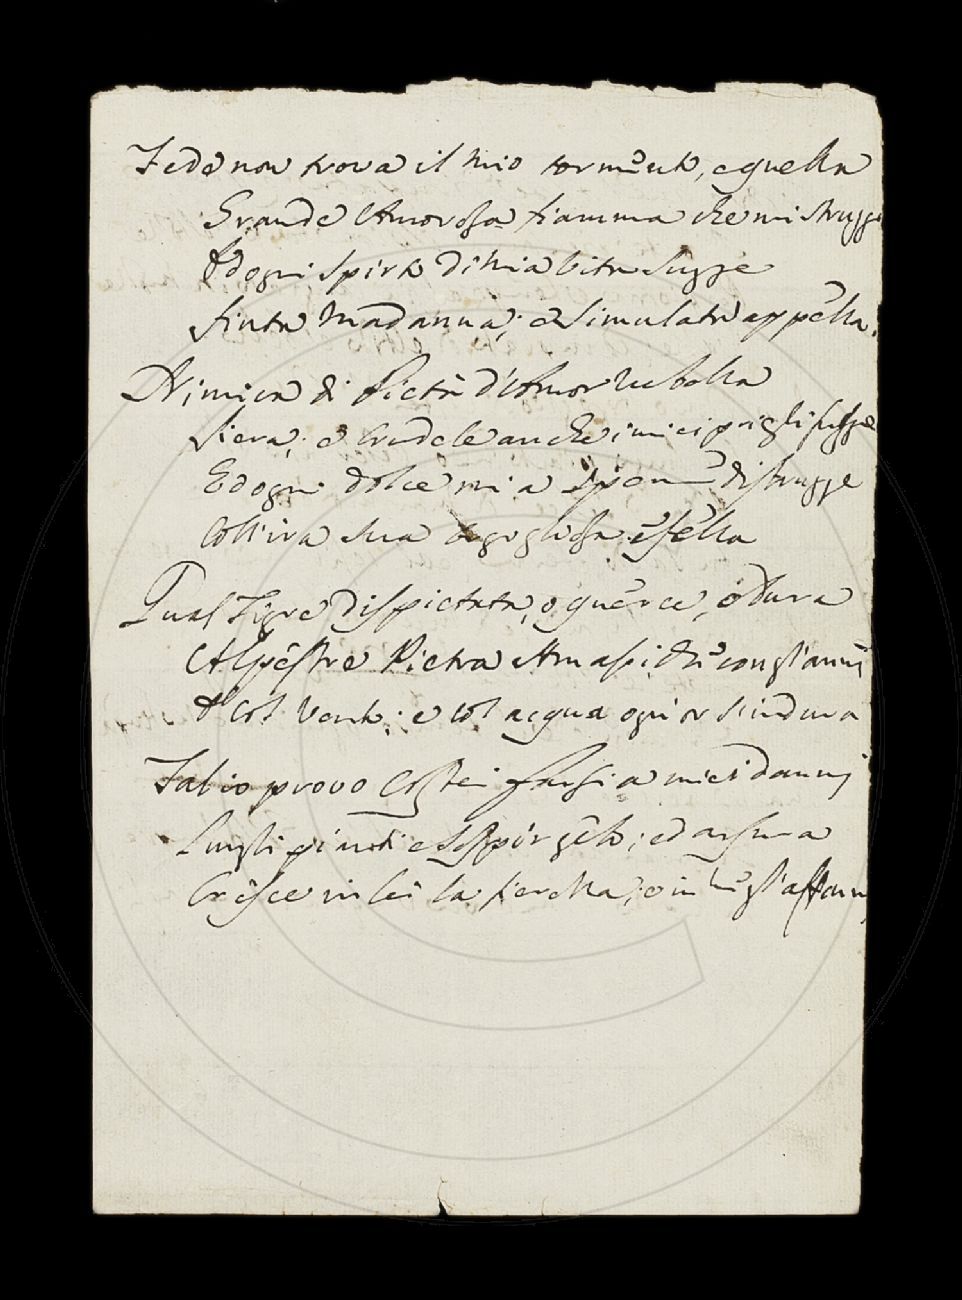 Fede non trova il mio tormento, e quella
Grande Amorosa fiamma che mi strugge
Ed ogni spirto di mia vita sugge
Finta Madonna, e simulata appella.
Nimica di Pietà d'Amor rubella
Fiera, e Crudele anche i miei prieghi fugge
Ed ogni dolce mia speme distrugge
Coll'ira sua orgogliosa, e fella
Qual Tigre dispietata, o querce, o dura
Alpestre Pietra Ama più con gl'anni
E col vento, e col acqua ogni or s'indura
Tal io provo Costei farsi a miei danni
Lungli pianti e sospir gelo, ed arsura
Cresce in lei la fierezza, e in me gl'affanni